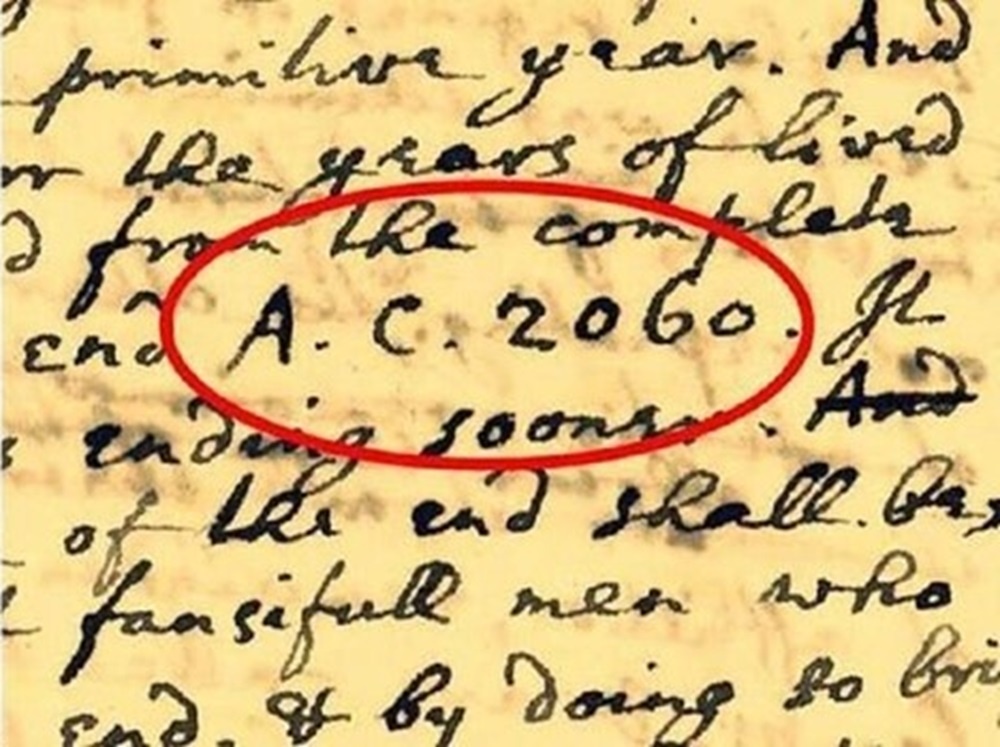 primitive year. And
the years of lived
from the complete
end A. C. 2060. It
ending sooner. And
of the end shall be
fansifull men who
end, & by doing so bri